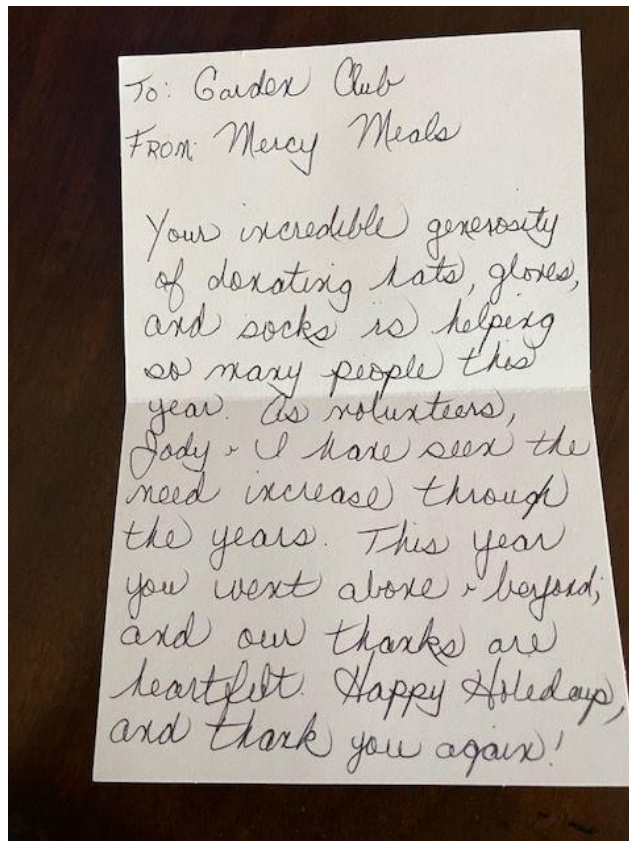 To: Garden Club
From: Mercy Meals
Your incredible generosity
of donating hats, gloves,
and socks is helping
so many people this
year. As volunteers,
Jody & I have seen the
need increase through
the years. This year
you went above & beyond,
and our thanks are
heartfelt. Happy Holidays,
and thank you again!